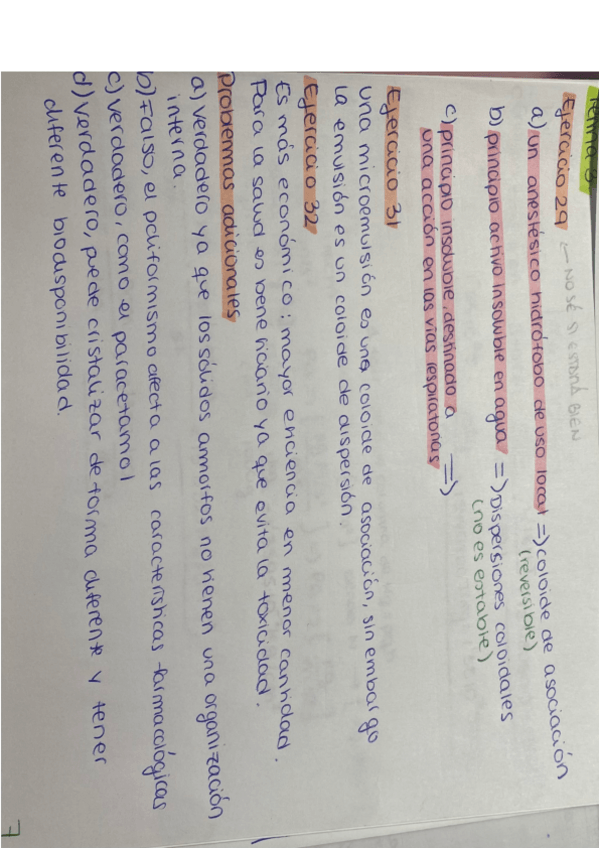 Ejercicio 29 ← NO SÉ SI ESTARÁ BIEN
a) un anestésico hidrófobo de uso local =) coloide de asociación
(reversible)
b) principio activo insoluble en agua =) Dispersiones coloidales
(no es estable)
c) principio insoluble destinado a =)
una acción en las vías respiratorias
Ejercicio 31
una microemulsión es una coloide de asociación, sin embargo
la emulsión es un coloide de dispersión.
Ejercicio 32
Es más económico: mayor eficiencia en menor cantidad.
Para la salud es beneficiario ya que evita la toxicidad.
Problemas adicionales
a) verdadero ya que los sólidos amorfos no tienen una organización
interna.
b) Falso, el poliformismo afecta a las características farmacológicas
c) verdadero, como el paracetamol
d) verdadero, puede cristalizar de forma diferente y tener
diferente biodisponibilidad.
7